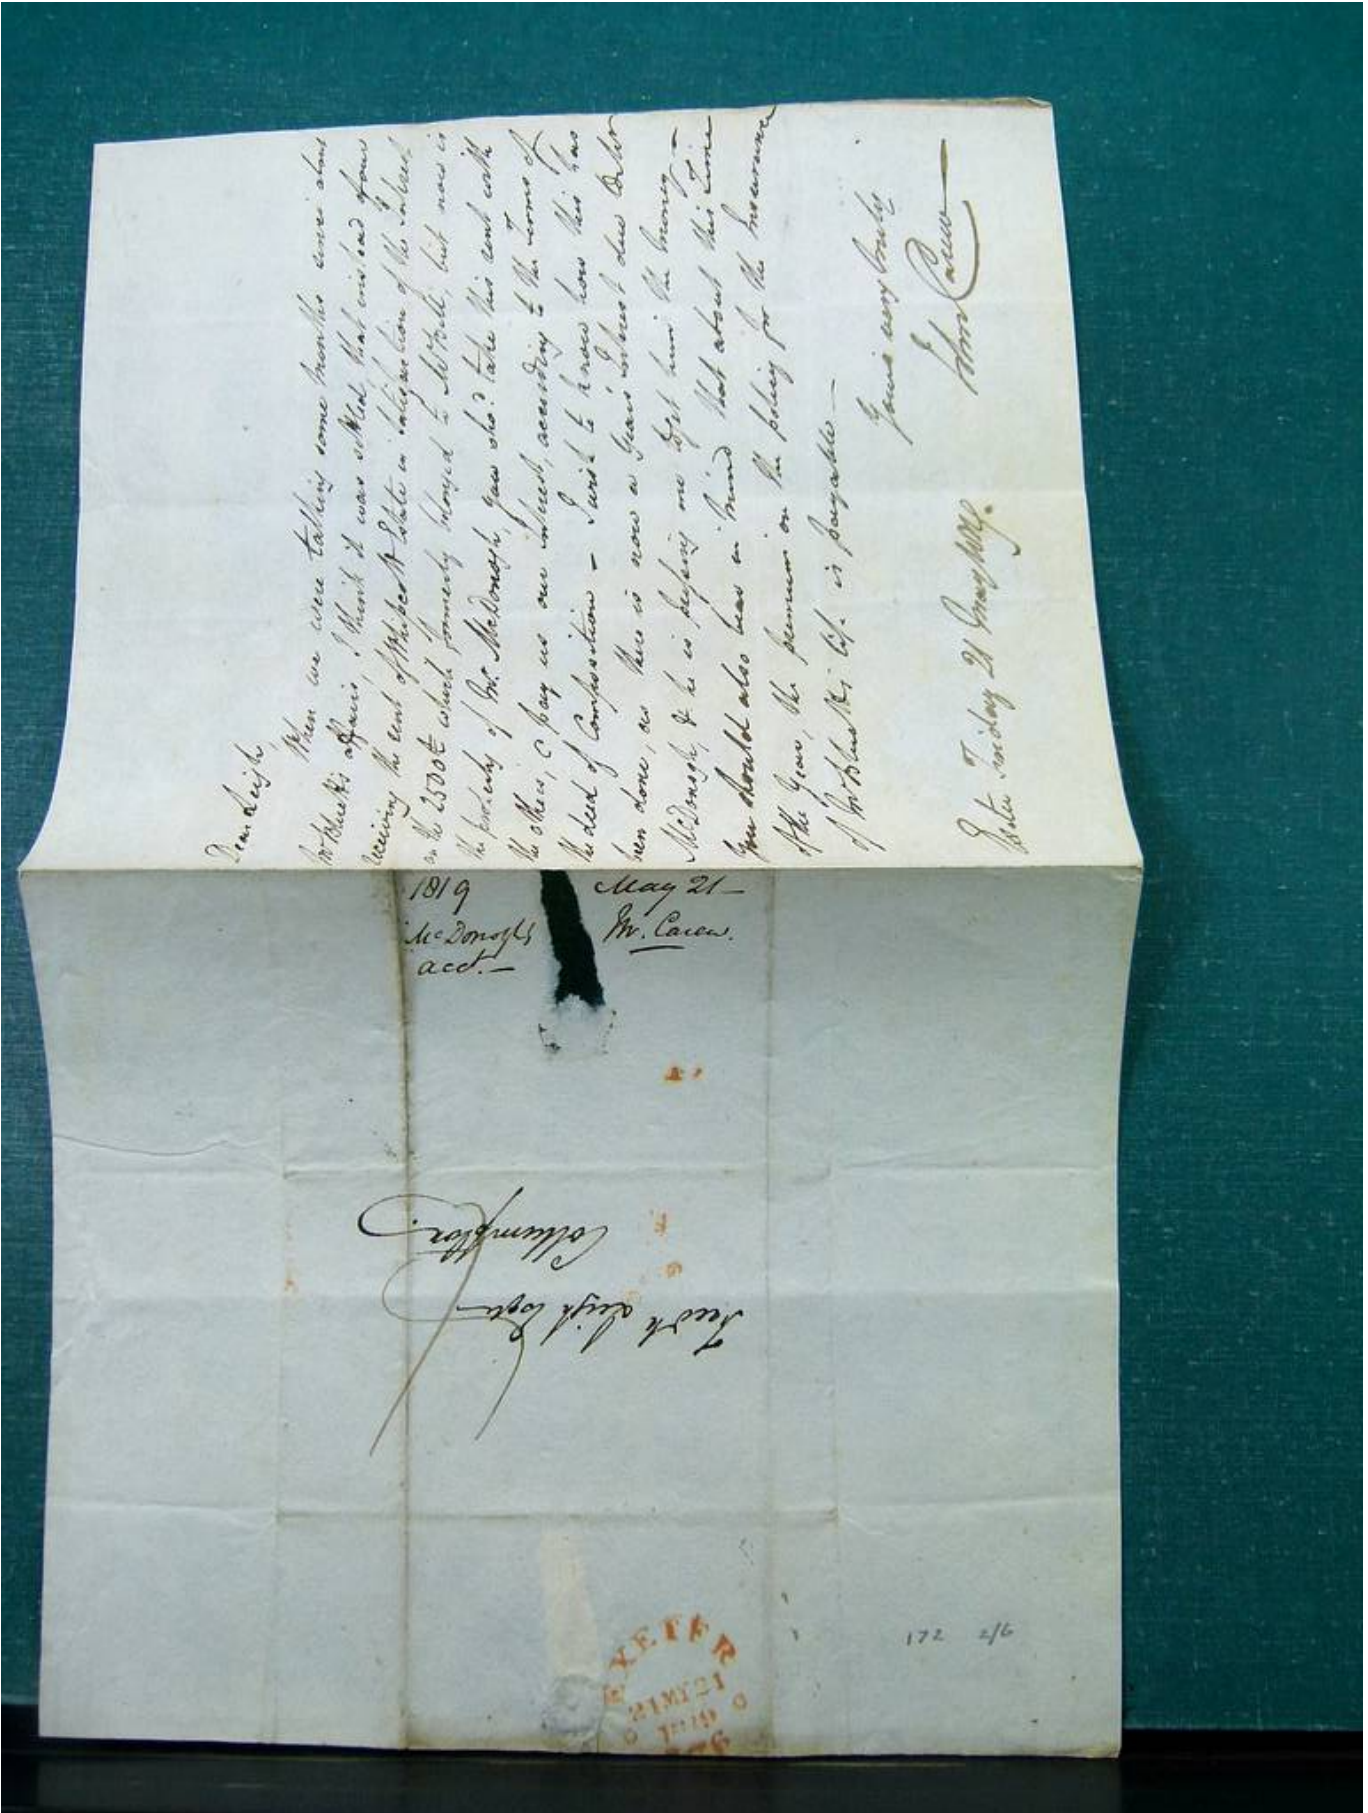 Dear Leigh,
When we were talking some months since about
Mr Bluett's affairs, I think it was settled, that instead of our
receiving the rent of Estate in satisfaction of the Interest
on the 2500£ which formerly belonged to Mr Kill, but now is
the property of Mr. McDonogh, you sho.d take this rent with
the others, & pay us our interest, according to the terms of
the deed of Composition – I wish to know how this has
been done, as there is now a years interest due to Mr
McDonogh, & he is pressing me to get him the money –
You should also bear in mind that about this time
of the Year, the premium on the policy for the Insurance
of Mr Bluett's life is payable –
Yours very truly
John Carew
Exeter Friday 21 May 1819.
1819 May 21 –
McDonogh's Mr. Carew.
acct. –
Leigh Esqr
Collumpton.
EXETER
21 MY 21
1819
172 2/6